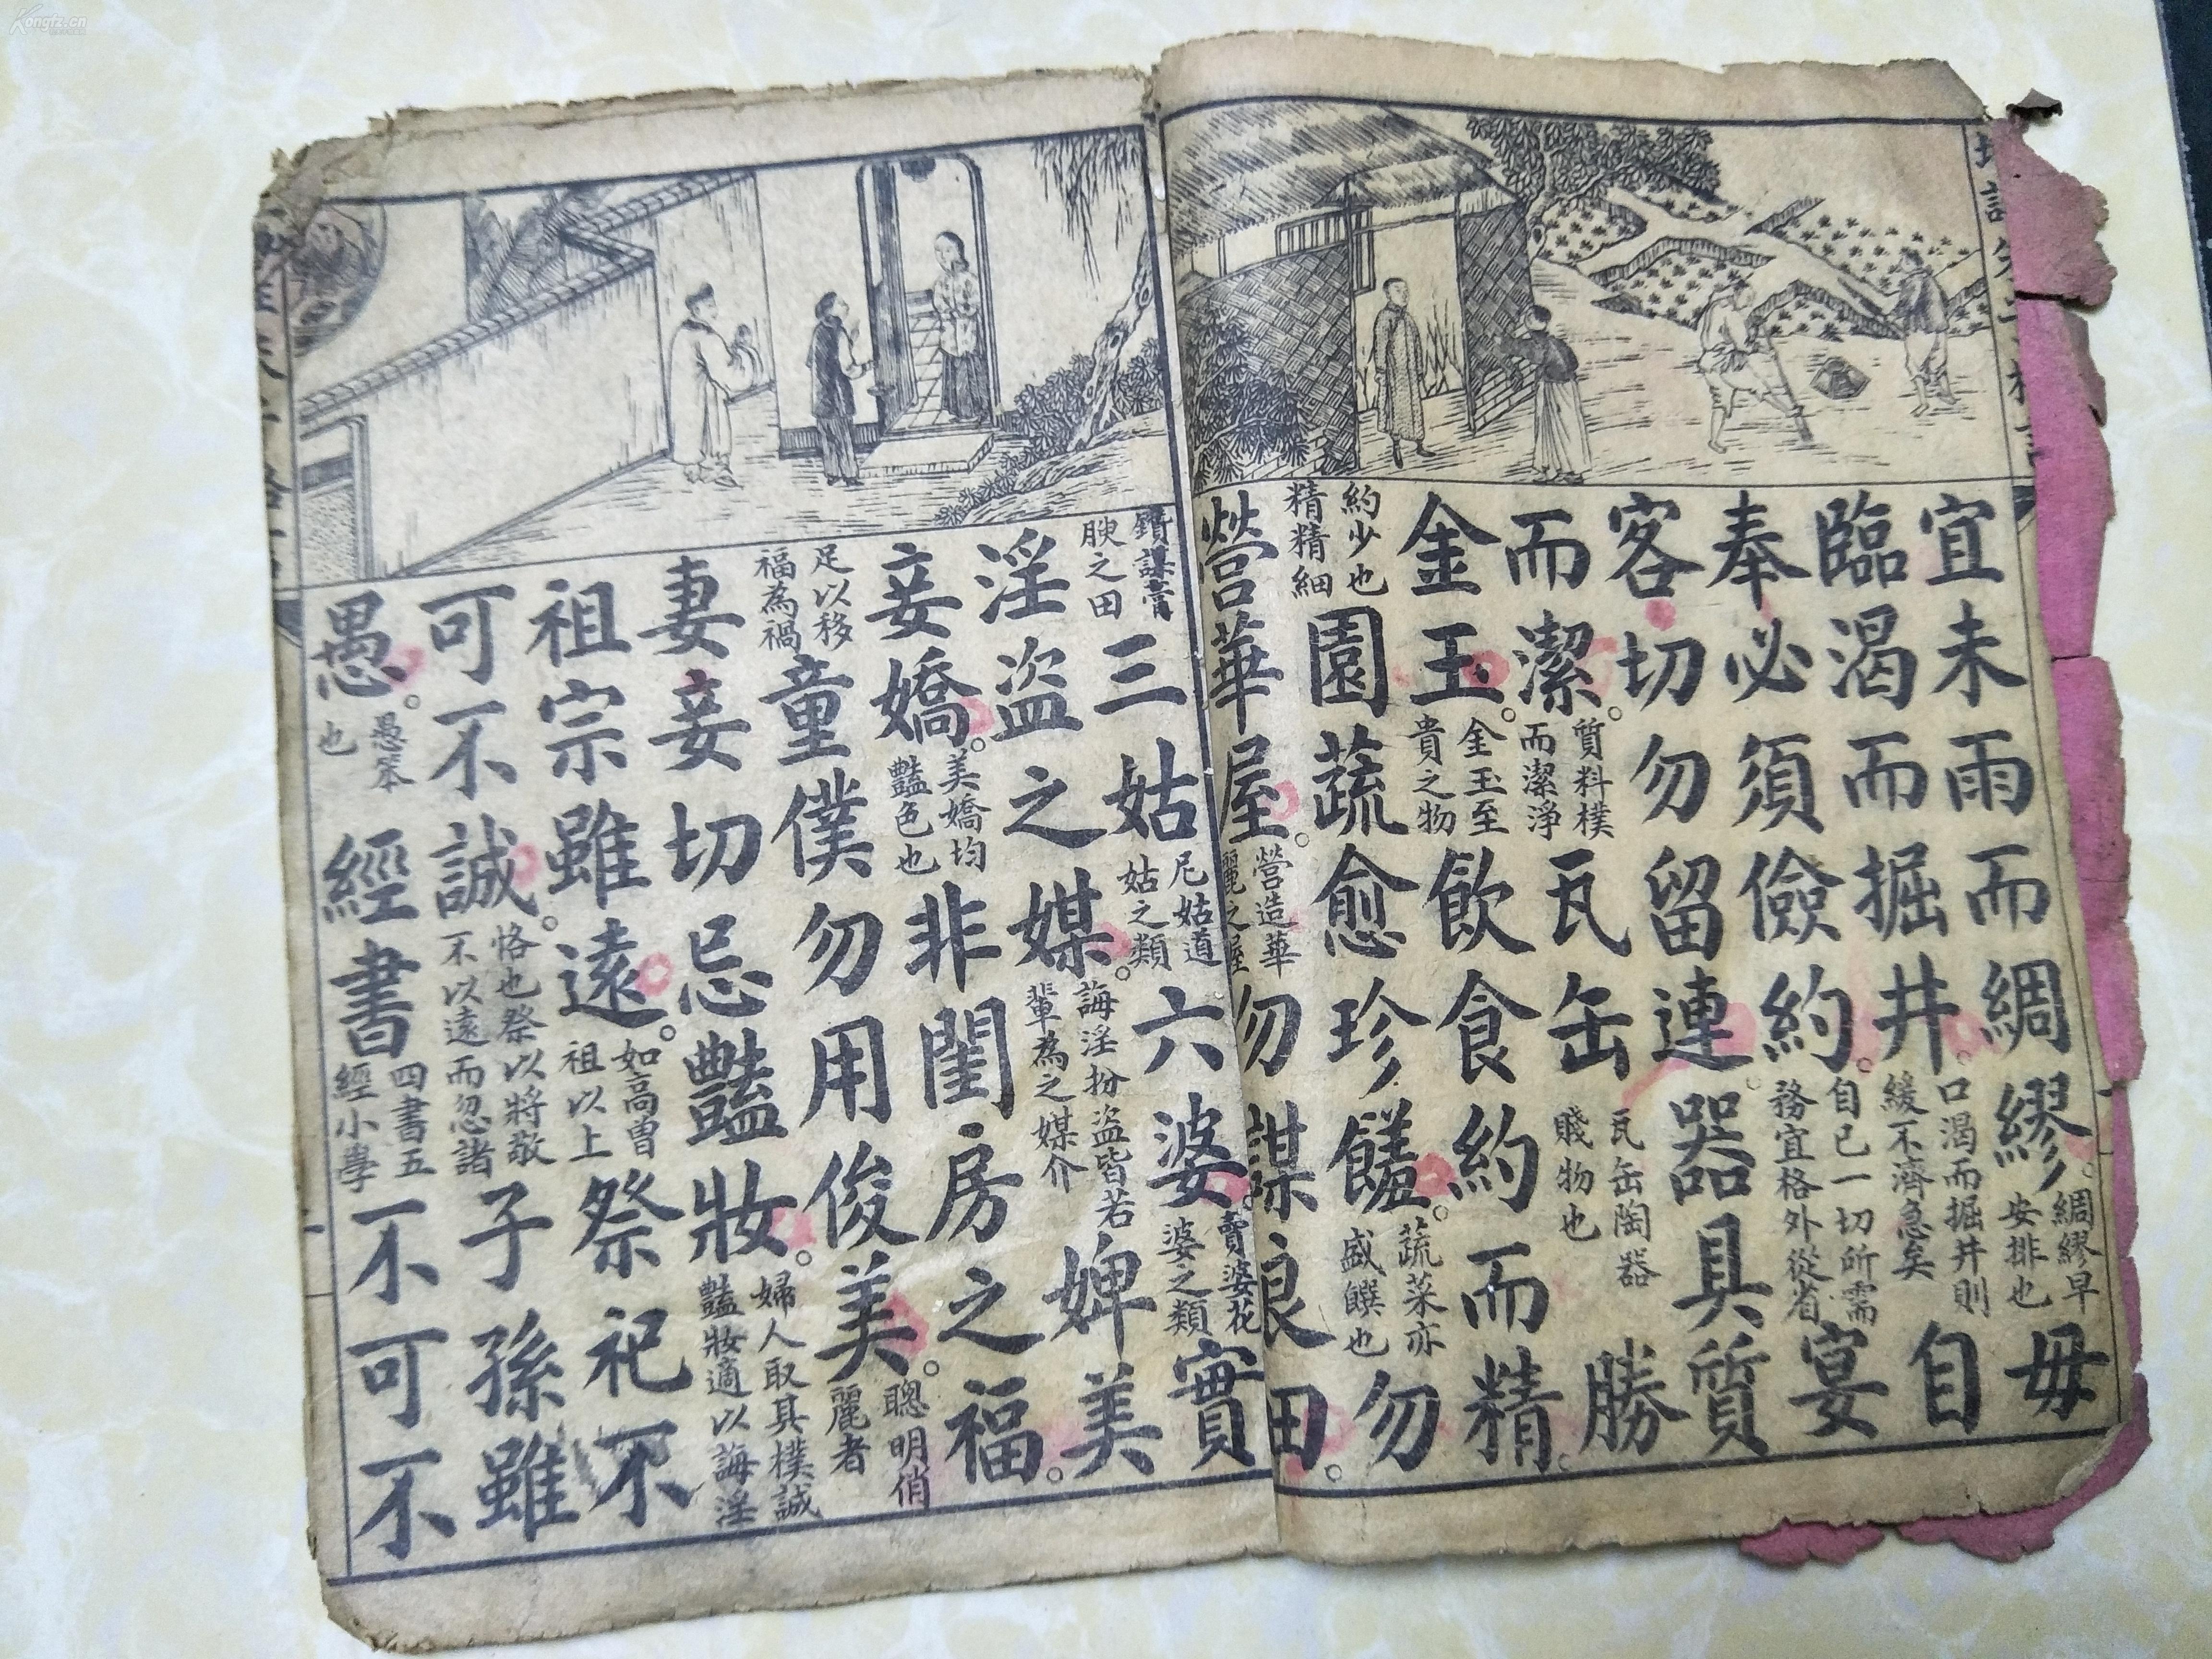 宜未雨而綢繆。綢繆早安排也毋
臨渴而掘井。口渴而掘井則緩不濟急矣自
奉必須儉約。自已一切所需務宜格外從省宴
客切勿留連。器具質
而潔。質料樸而潔淨瓦缶瓦缶陶器賤物也勝
金玉。金玉至貴之物飲食約而精。
約少也精精細園蔬愈珍饈。蔬菜亦盛饌也勿
營華屋。營造華麗之屋勿謀良田。
鑽謀膏腴之田三姑尼姑道姑之類六婆。賣婆花婆之類實
淫盜之媒。誨淫扮盜皆若輩為之媒介婢美
妾嬌。美嬌均豔色也非閨房之福。
足以移福為禍童僕勿用俊美。聰明俏麗者
妻妾切忌豔妝。婦人取其樸誠豔妝適以誨淫
祖宗雖遠。如高曾祖以上祭祀不
可不誠。恪也祭以將敬不以遠而忽諸子孫雖
愚。愚笨也經書四書五經小學不可不
Kongfz.cn